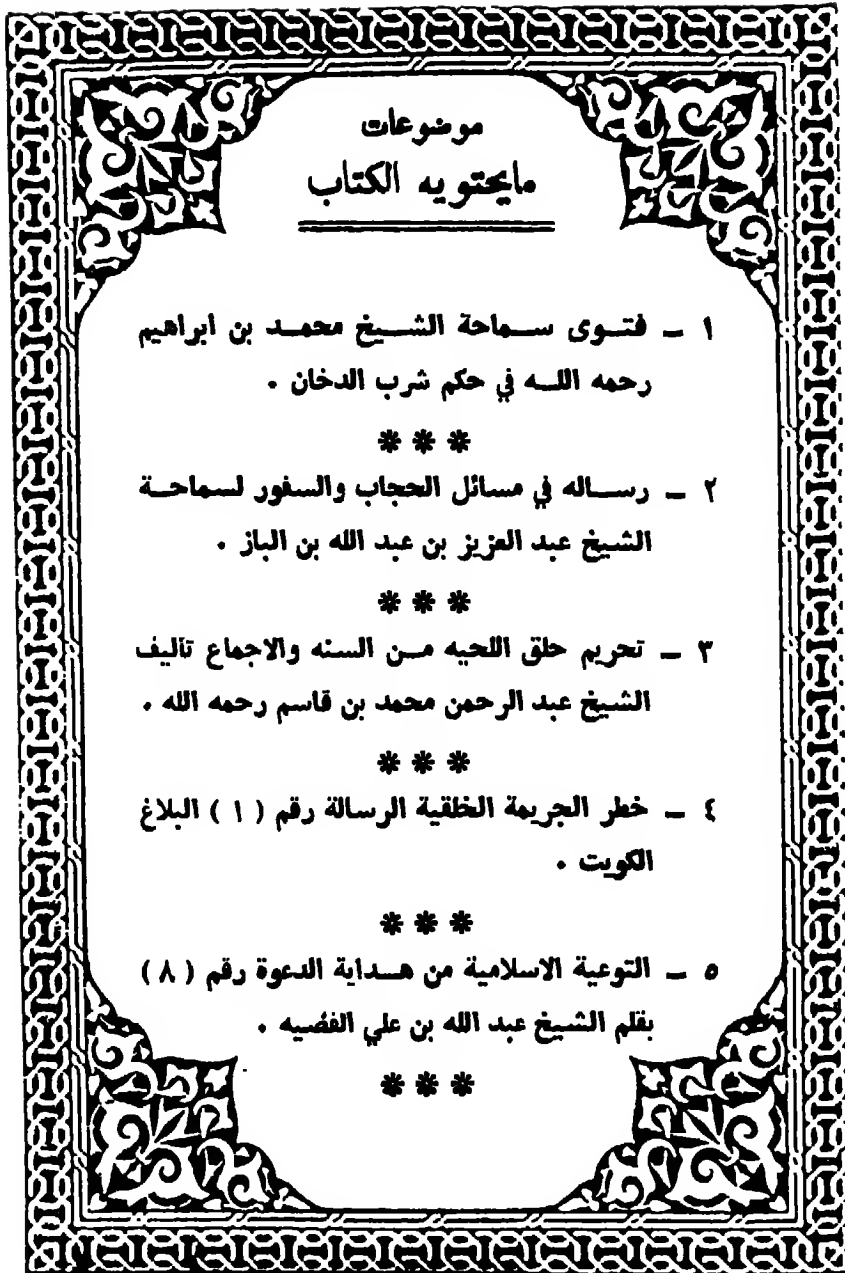 موضوعات
مايحتويه الكتاب
١ ــ فتــوى ســماحة الشــيخ محمــد بن ابراهيم
رحمه اللــه في حكم شرب الدخان .
* * *
٢ ــ رســاله في مسائل الحجاب والسفور لسماحــة
الشيخ عبد العزيز بن عبد الله بن الباز .
* * *
٣ ــ تحريم حلق اللحيه مــن السنه والاجماع تاليف
الشيخ عبد الرحمن محمد بن قاسم رحمه الله .
* * *
٤ ــ خطر الجريمة الخلقية الرسالة رقم ( ١ ) البلاغ
الكويت .
* * *
٥ ــ التوعية الاسلامية من هــداية الدعوة رقم ( ٨ )
بقلم الشيخ عبد الله بن علي الغضيه .
* * *